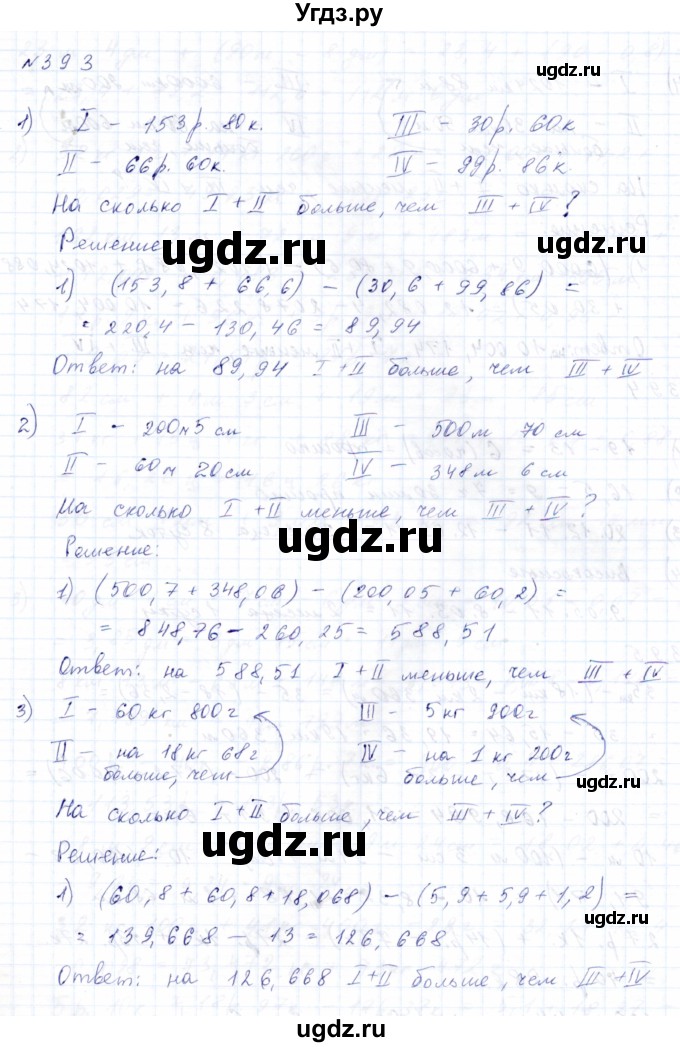 Угдз.ру
№393
1) I – 153р. 80к. III – 30р. 60к
II – 66р. 60к. IV – 99р. 86к.
На сколько I + II больше, чем III + IV ?
Решение
ugdz.ru
ugdz.ru
1) (153,8 + 66,6) – (30,6 + 99,86) =
= 220,4 – 130,46 = 89,94
Ответ: на 89,94 I+II больше, чем III + IV
2) I – 200м 5 см III – 500м 70 см
II – 60м 20см IV – 348м 6 см
На сколько I + II меньше, чем III + IV ?
ugdz.ru
Решение:
1) (500,7 + 348,06) – (200,05 + 60,2) =
= 848,76 – 260,25 = 588,51
ugdz.ru
Ответ: на 588,51 I + II меньше, чем III + IV
3) I – 60 кг 800г III – 5 кг 900г
II – на 18 кг 68г IV – на 1 кг 200г
больше, чем больше, чем
ugdz.ru
На сколько I+II больше, чем III + IV?
ugdz.ru
Решение:
1) (60,8 + 60,8 + 18,068) – (5,9 + 5,9 + 1,2) =
ugdz.ru
= 139,668 – 13 = 126,668
Ответ: на 126,668 I+II больше, чем III+IV
ugdz.ru